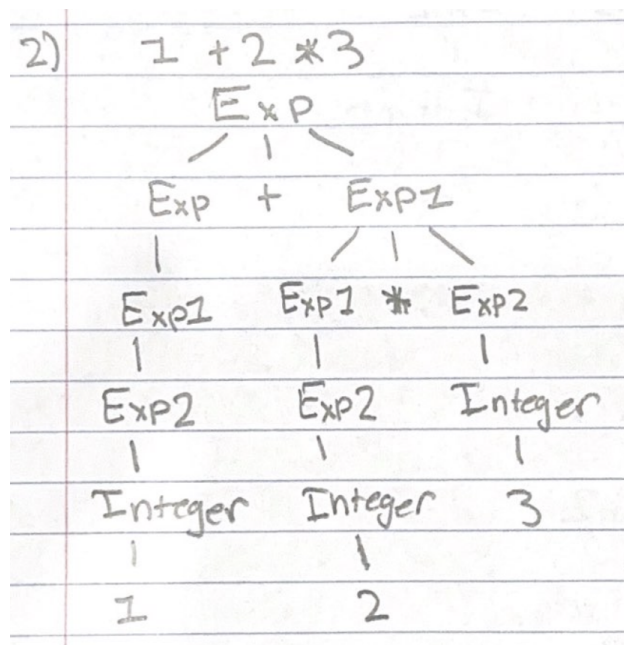 2) 1 + 2 * 3
Exp
Exp + Exp1
Exp1 Exp1 * Exp2
Exp2 Exp2 Integer
Integer Integer 3
1 2